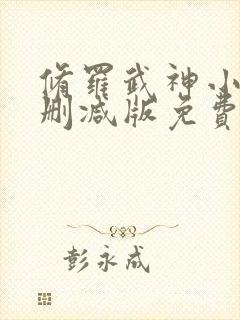 脩羅武神小
刪减版免費
彭永成